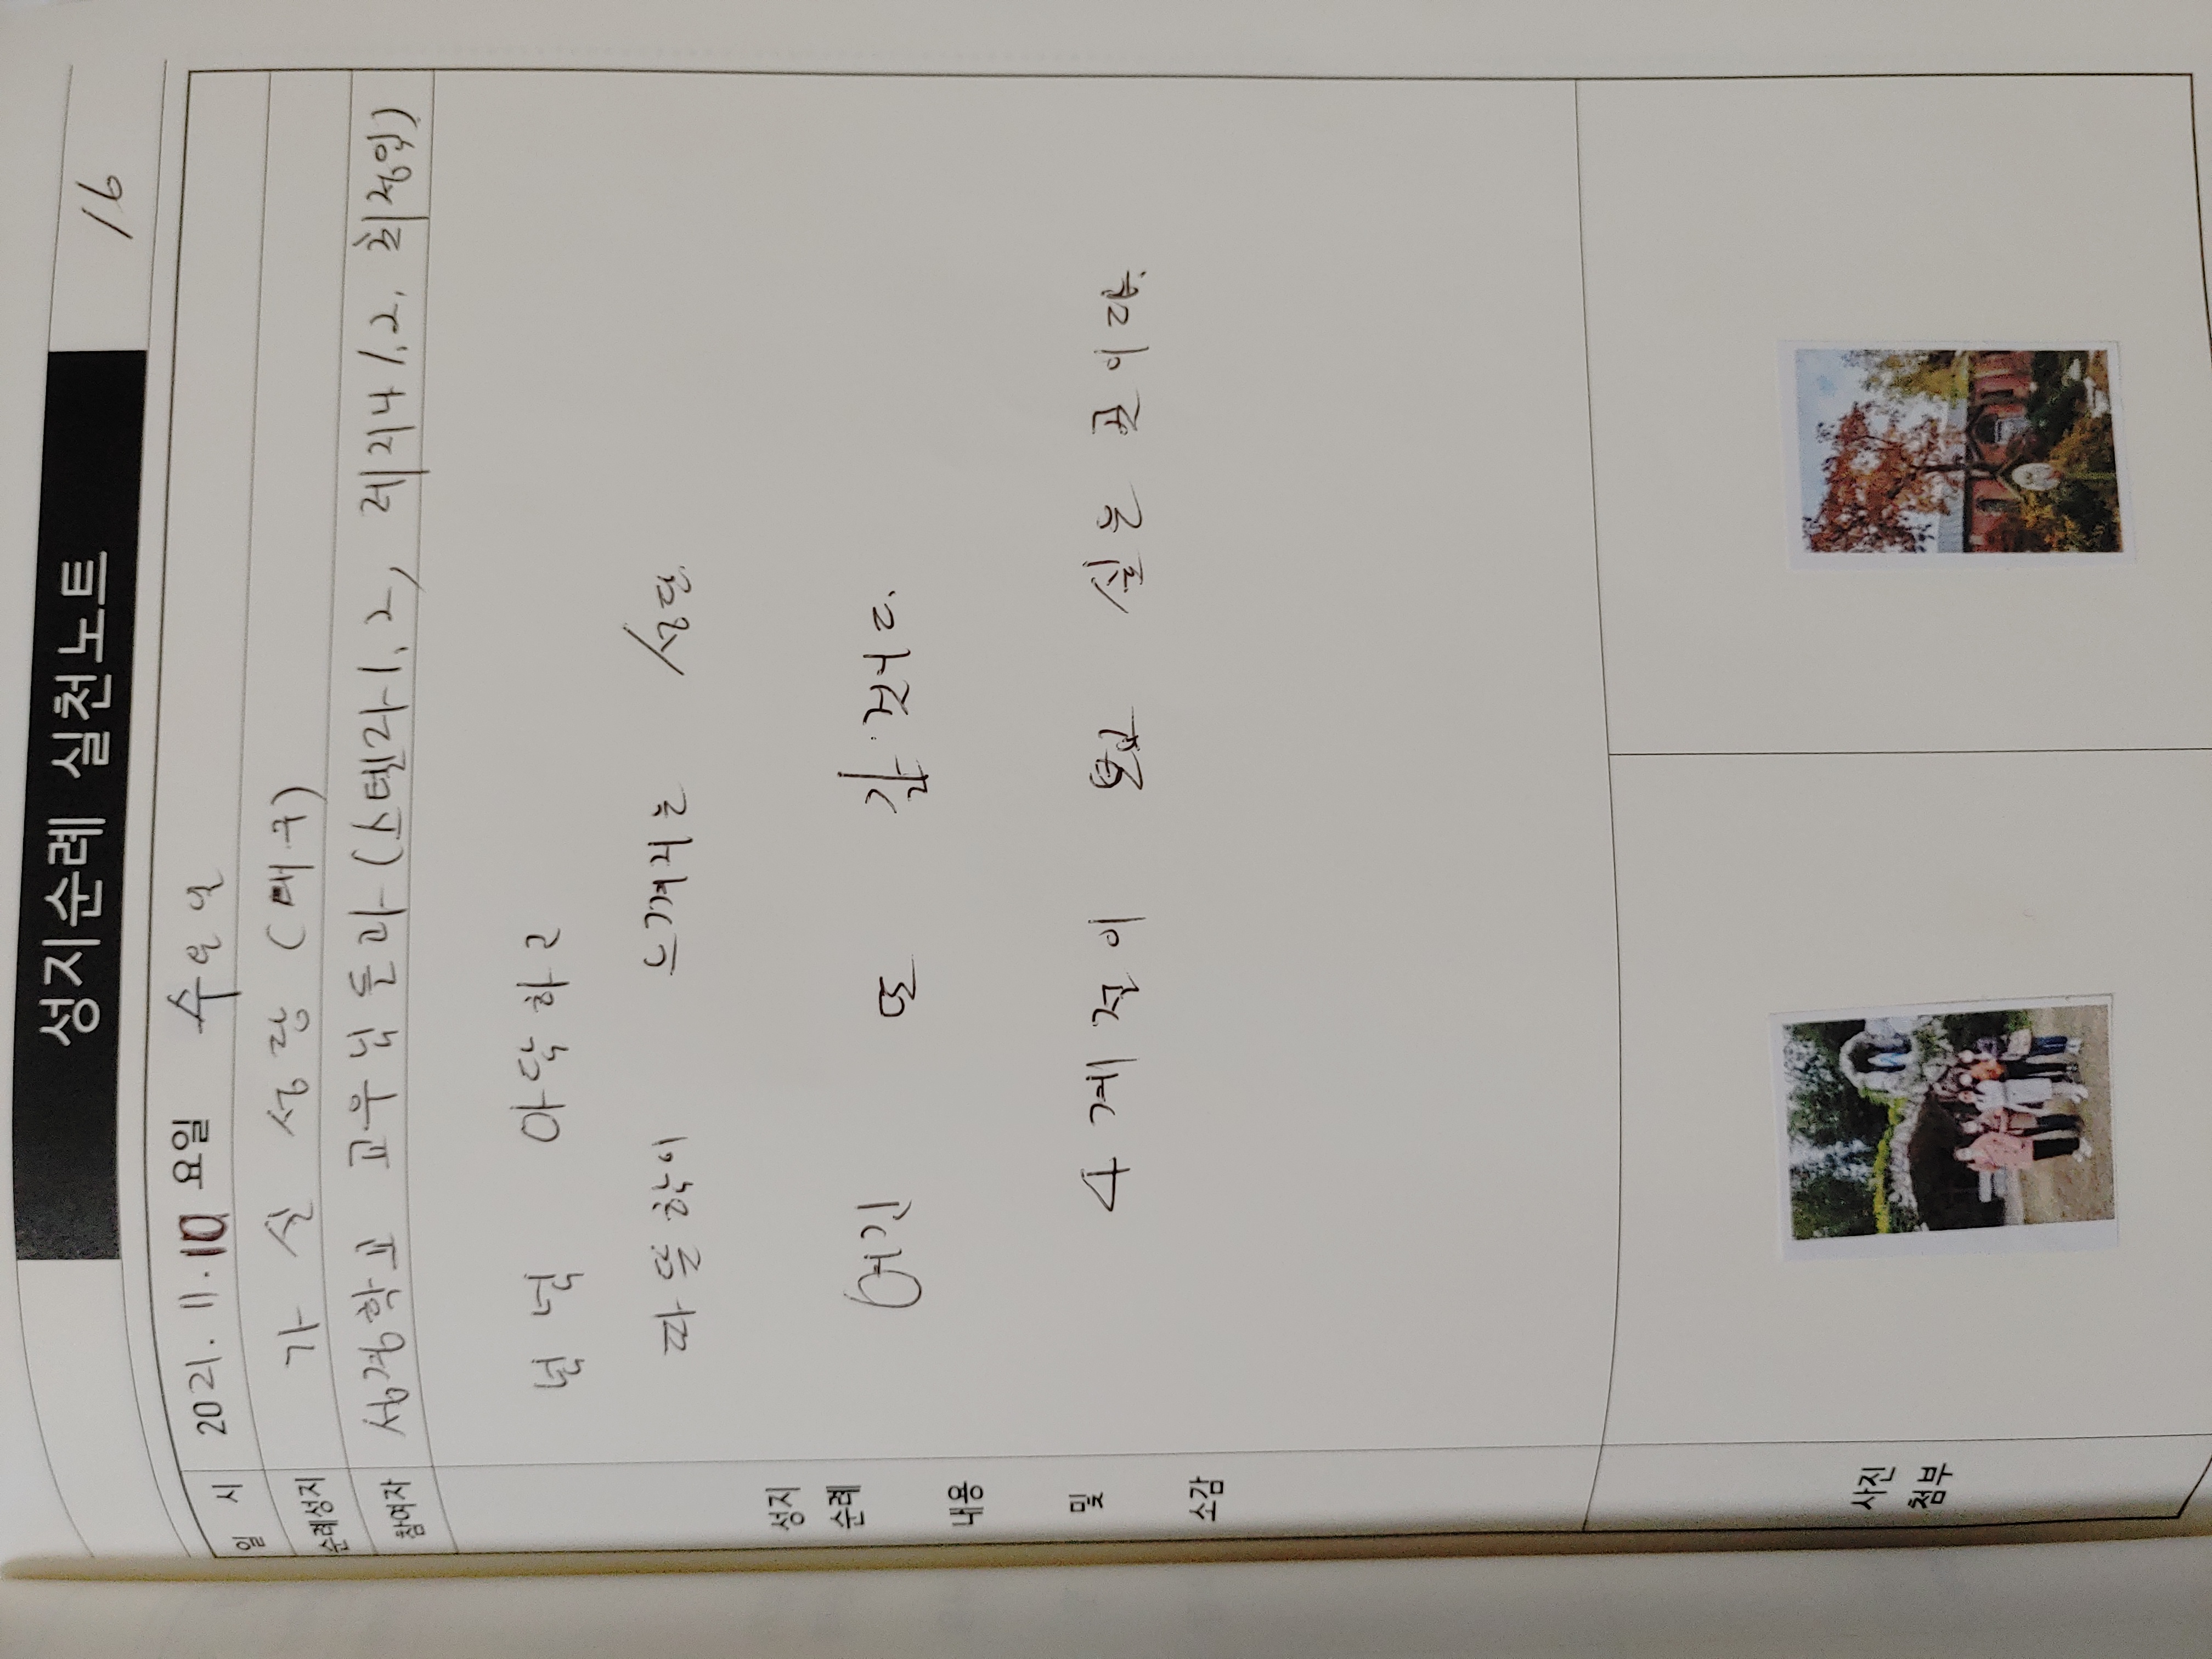 성지순례 실천노트
16
일 시 2021. 11. 10 요일 수요일
순례성지 가실 성당 (대구)
참여자 성경학교 교우님들과 (스텔라1, 2, 레지나 1, 2, 최정임)
넘넘 아담하고
따뜻함이 느껴지는 성당
성지
순례
여긴 또 갈 것이다.
내용
및
4계절이 보고 싶은 곳이다.
소감
사진
첨부